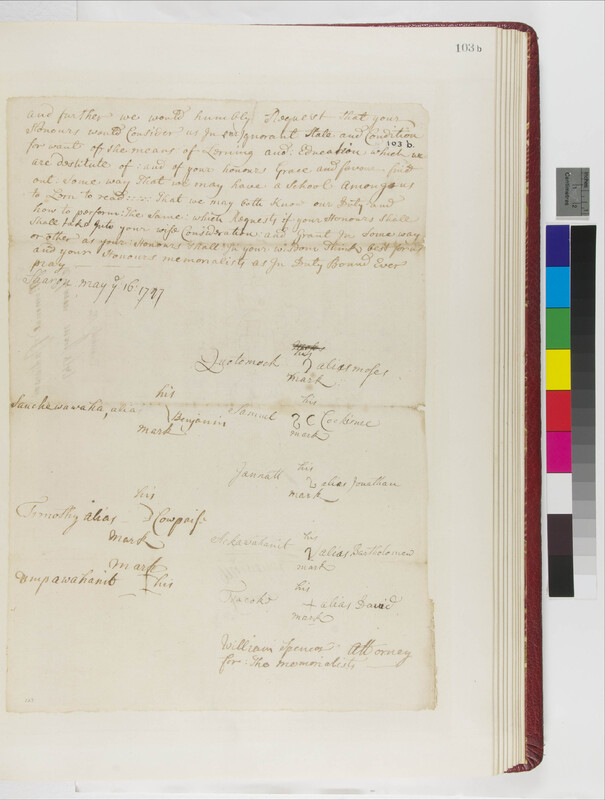 103 b
and further we would humbly Request that your
Honours would Consider us In our Ignorant State and Condition
for want of the means of Lorning and Education which we
103 b.
are destitute of: and of your honours Grace and favour find
out Some way that we may have a School Amongst us
to Lorn to read: that we may both Know our Duty and
how to perform the Same: which Requests if your Honours shall
Shall take into your wise Consideration and Grant In Some way
or other as your Honours Shall In your wisdom think best for us
and your Honours memorialists as In Duty Bound Ever
pray
Sharon may ye 16: 1747
his
alias moses
mark
his
Sanchewawaha, alia Benjamin
mark
his
Samuel Cockenee
mark
Jannatt his alias Jonathan
mark
his
Timothy alias Cowpais
mark
his
alias Bartholomew
mark
mark
Umpawahanit his
his
alias David
mark
William Spencer Attorney
for the memorialists
Centimetres